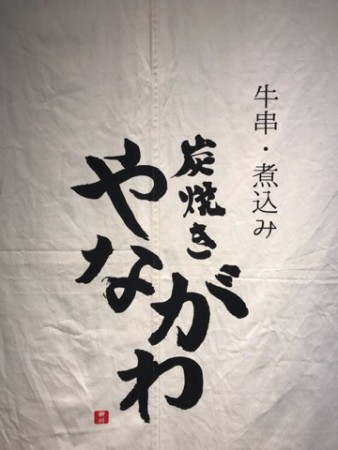 牛串・煮込み
炭焼き
やながわ